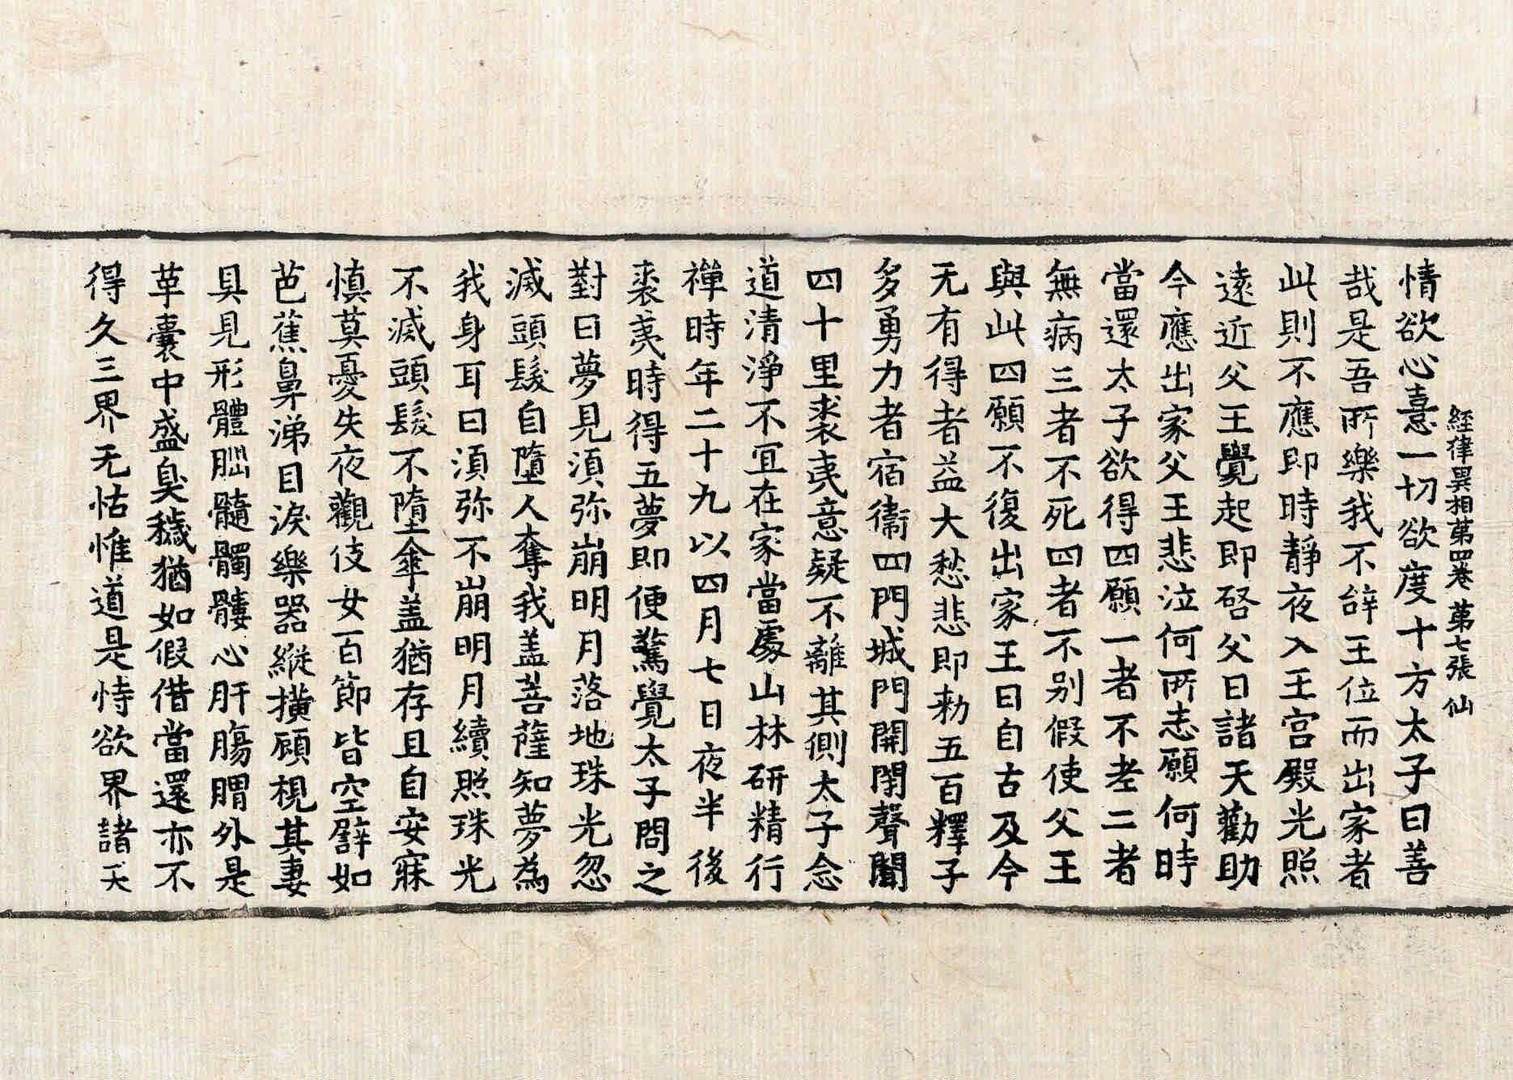 經律異相第四卷 第七張 仙
情欲心憙一切欲度十方太子曰善
哉是吾所樂我不辝王位而出家者
此則不應即時靜夜入王宫殿光照
遠近父王覺起即啓父曰諸天勸助
今應出家父王悲泣何所志願何時
當還太子欲得四願一者不老二者
無病三者不死四者不别假使父王
與此四願不復出家王曰自古及今
无有得者益大愁悲即勑五百釋子
多勇力者宿衞四門城門開閉聲聞
四十里裘夷意疑不離其側太子念
道清淨不宜在家當處山林研精行
禪時年二十九以四月七日夜半後
裘夷時得五夢即便驚覺太子問之
對曰夢見湏弥崩明月落地珠光忽
滅頭髮自墮人奪我盖菩薩知夢為
我身耳曰湏弥不崩明月續照珠光
不滅頭髮不墮傘盖猶存且自安寐
慎莫憂失夜觀伎女百節皆空譬如
芭蕉鼻涕目淚樂器縱横顧視其妻
具見形體𦙄髓髑髏心肝腸胃外是
革囊中盛臭穢猶如假借當還亦不
得久三界无怙惟道是恃欲界諸天